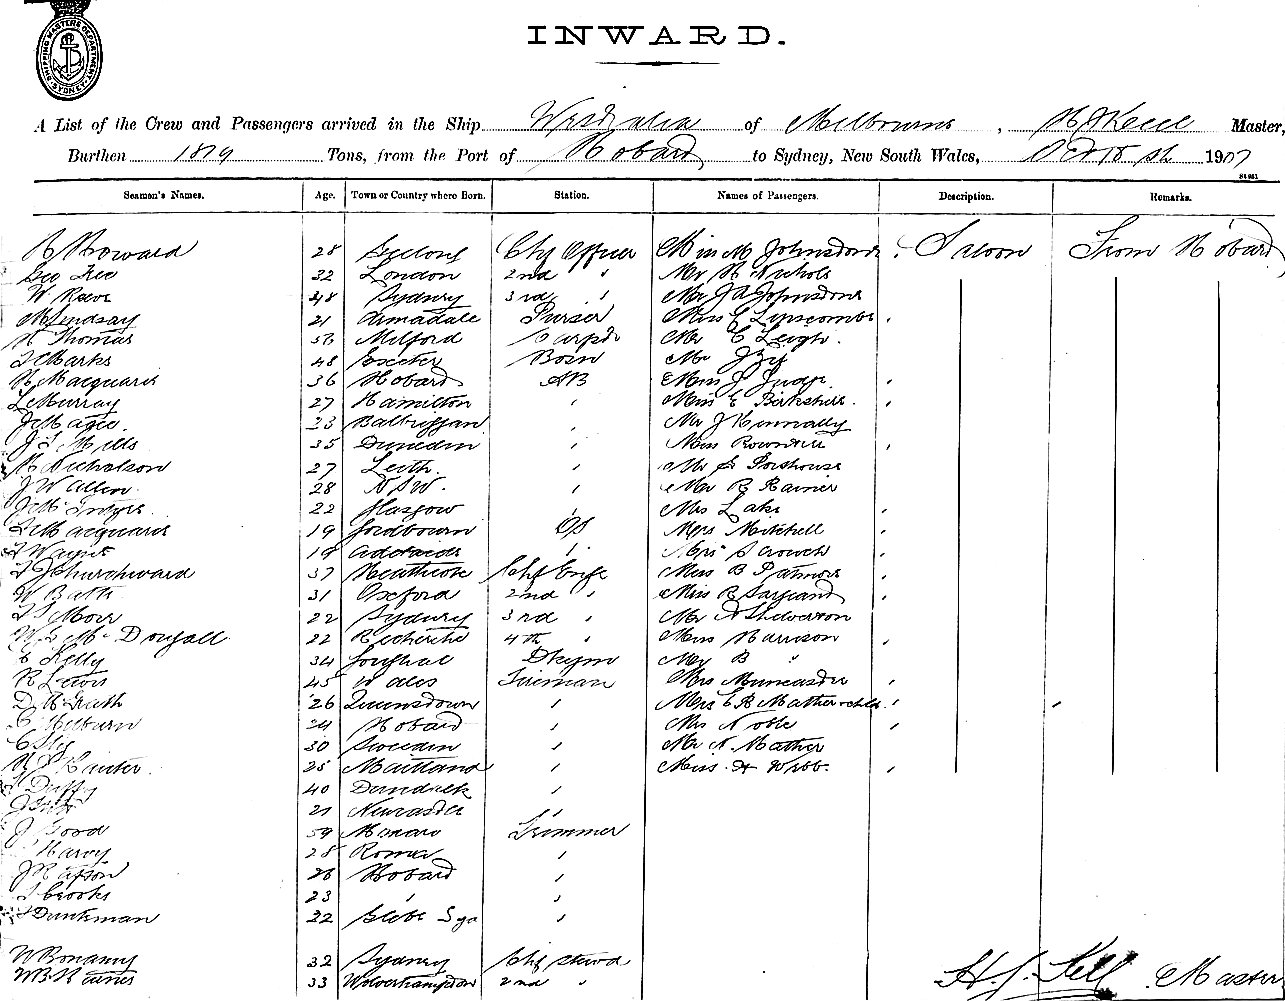 SHIPPING MASTERS DEPARTMENT SYDNEY
INWARD.
A List of the Crew and Passengers arrived in the Ship Westralia of Melbourne, H J Kell Master,
Burthen 1819 Tons, from the Port of Hobart to Sydney, New South Wales, Oct 18th 1907
Seamen's Names. Age. Town or Country where Born. Station. Names of Passengers. Description. Remarks.
Howard 28 Geelong Chf Officer Miss M Johnstone Saloon From Hobart
Geo 32 London 2nd " Mr H Nichols
W 48 Sydney 3rd " Mr J A Johnstone
M Lindsay 21 Armadale Purser Miss E Lipscombe
Thomas 56 Milford Carptr Mr E Leigh.
Marks 48 Exeter Bosn Mr J
Macquarie 36 Hobart AB Miss J Judge
Murray 27 Hamilton " Miss E Birkshire.
J Magee. 23 Balbriggan " Mr J Kennally
J Mills 35 Dunedin " Miss Rowntree
Nicholson 27 Leith. " Mr S Porthouse
J W Allen. 28 N S W. " Mr R Rainer
J McIntyre 22 Glasgow " Mrs Lake
Macquarie 19 OS Mrs Mitchell
Wayne 19 Adelaide " Mrs S Crouch
Churchward 37 Heathcote Chf Engr Miss B Patmore
W Butt 31 Oxford 2nd " Miss R Sargeant
Moir 22 Sydney 3rd " Mr A Shelverton
W McDougall 22 Recherche 4th " Miss Harrison
Kelly 34 Youghal Dkymn Mr B "
R Lewis 45 Wales Fireman Mrs Muncaster
D McGrath 26 Queensdown " Mrs E R Mather + chld
Milburn 24 Hobart " Mrs Noble
C 30 Sweden " Mr N. Mather
Hunter 25 Maitland " Miss A Webb.
Duffy 40 Dundalk "
J 21 Newcastle "
J Good 59 Monaro Trimmer
Harvy 25 Roma "
J Rapson 26 Hobart "
Brooks 23 " "
Dunkman 22 Glebe Syd "
W Bonamy 32 Sydney Chf Stewd
W B Raines 33 Wolverhampton 2nd " H. J. Kell Master